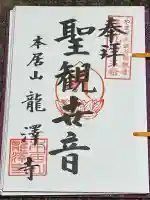 奉拝
聖観世音
本居山 龍澤寺